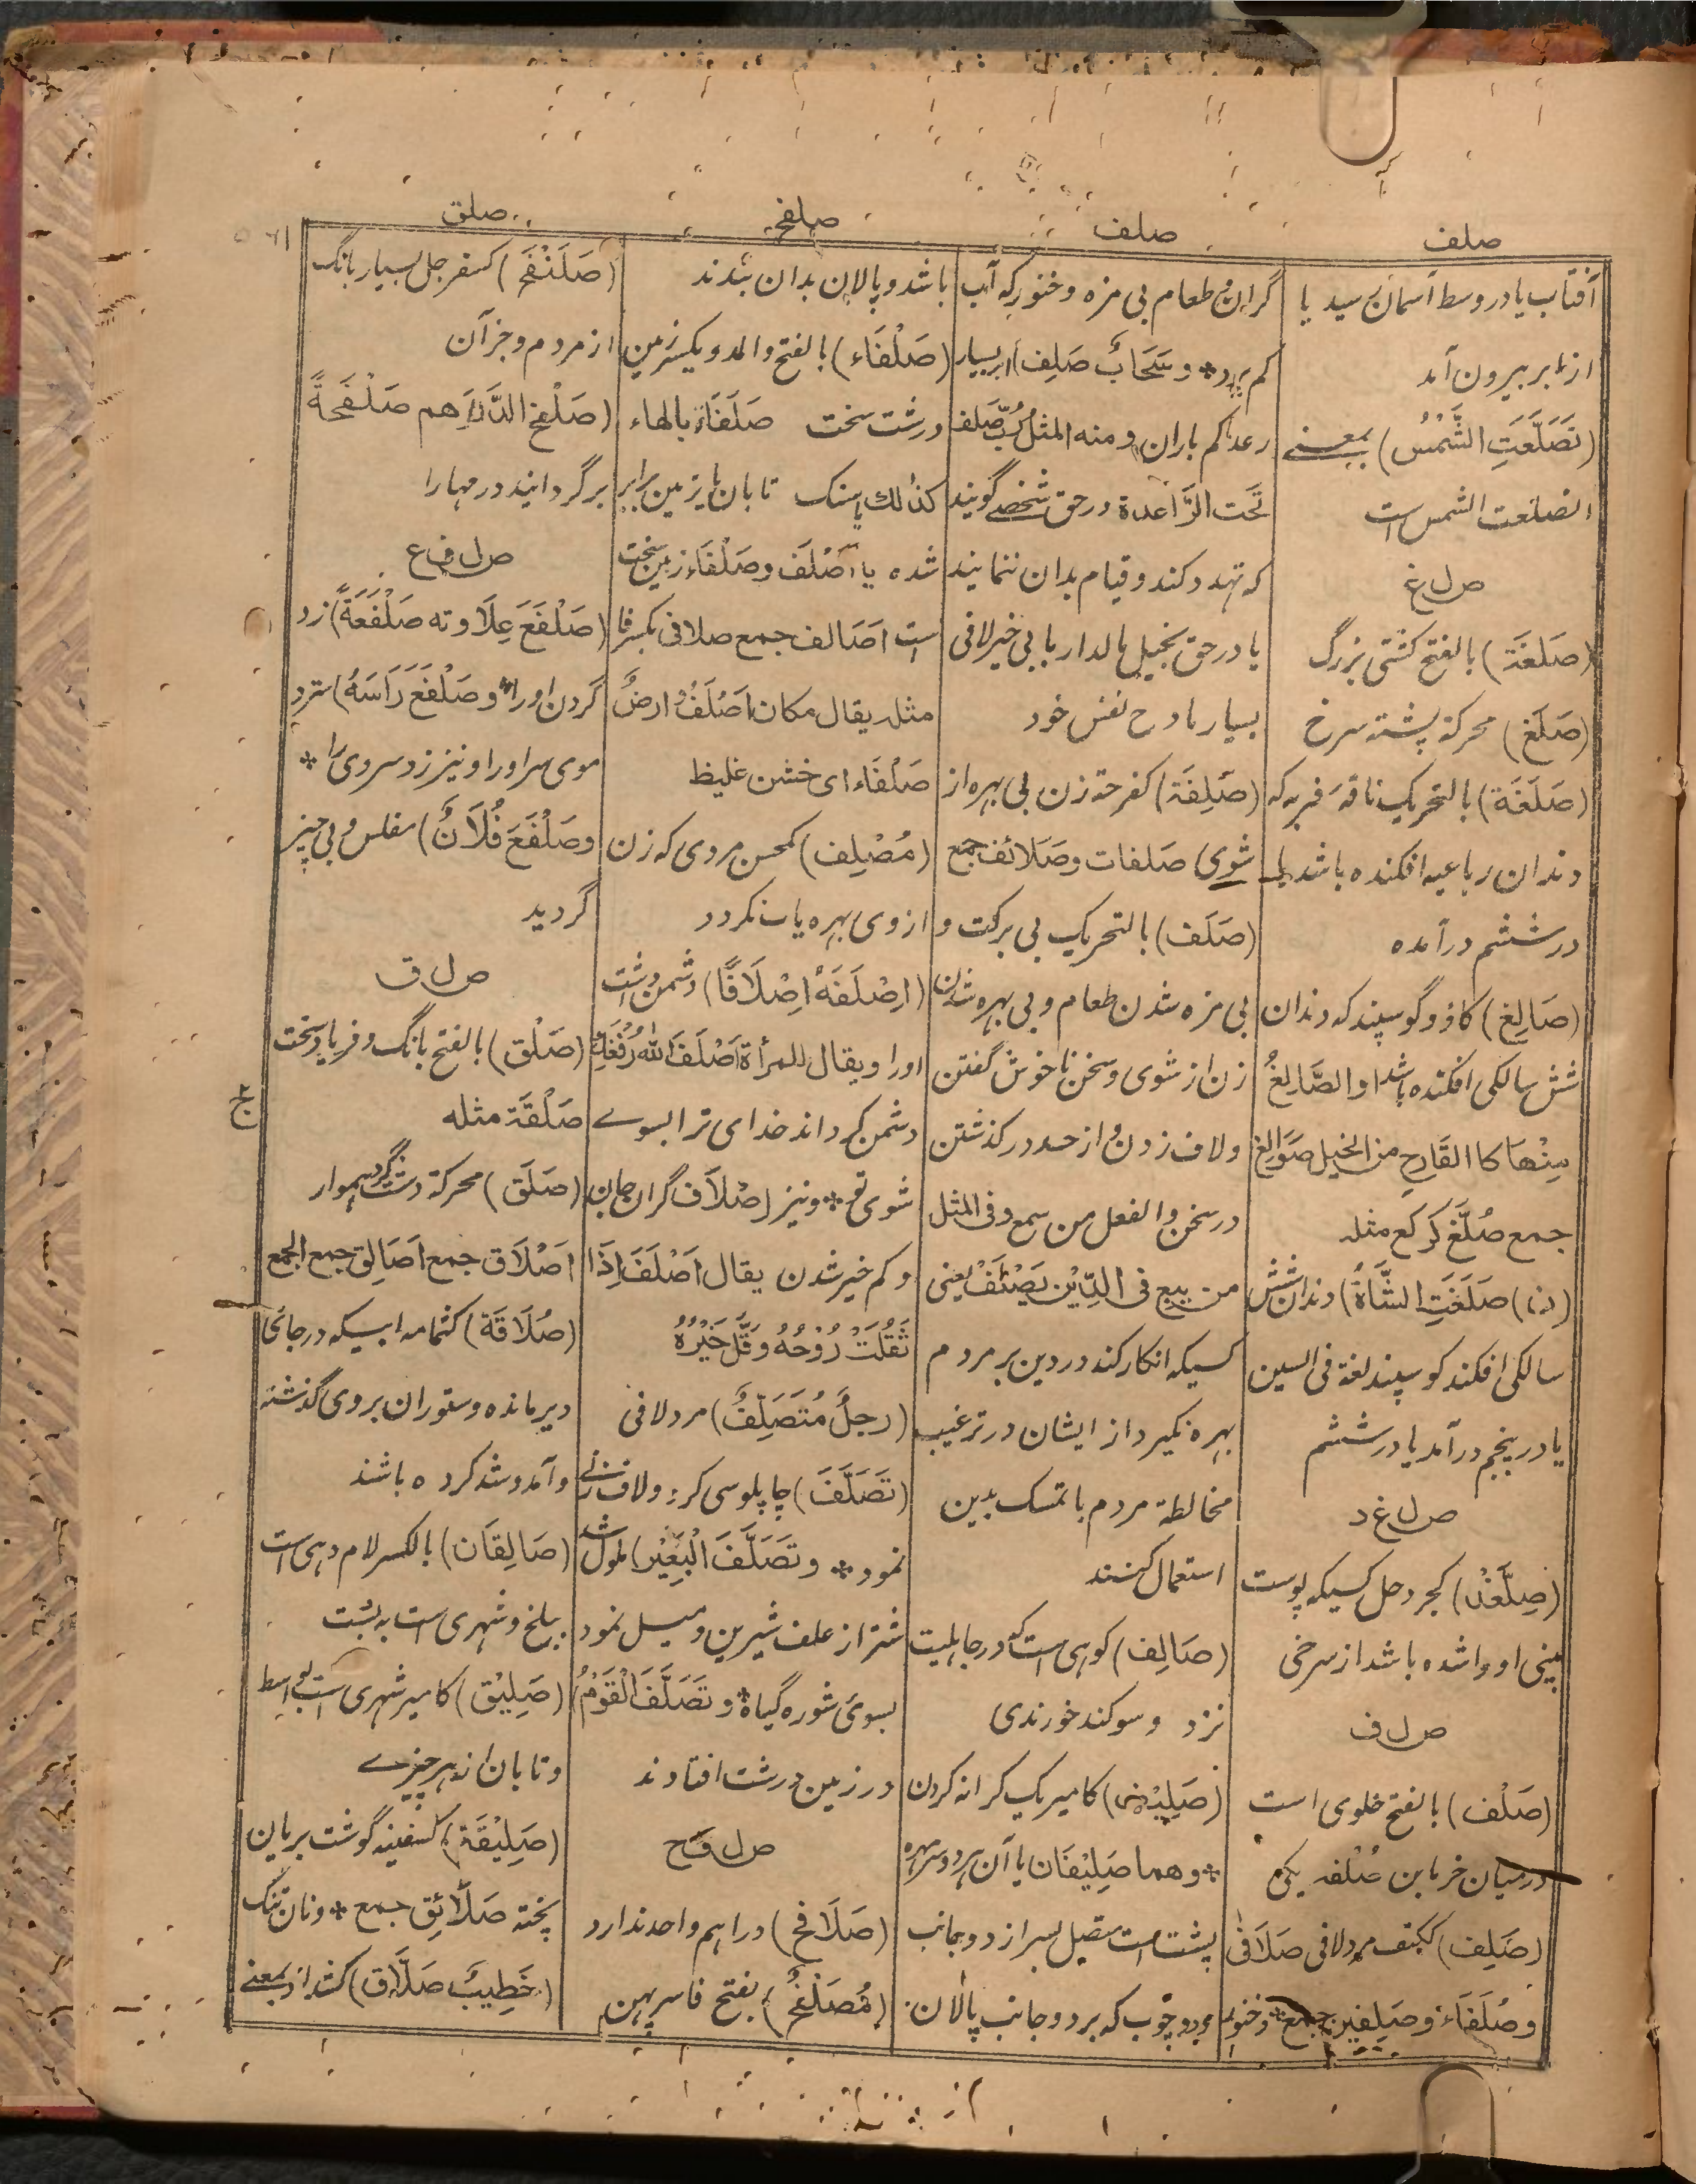 صلف
صلف
صلفح
صلق
آفتاب یا در وسط آسمان رسید یا
از ابر بیرون آمد
(تَصَلَّعَتِ الشَّمْسُ) بمعنے
انصلعت الشمس است
ص ل غ
(صَلغَة) بالفتح کشتی بزرگ
(صَلَغ) محرکة پشته سرخ
(صَلَغَة) بالتحریک ناقه فربه که
دندان رباعیه افکنده باشد یا
در ششم درآمده
(صَالِغ) کاؤ و گوسپند که دندان
شش سالکی افکنده باشد او الصَّالِغُ
مِنْهَا کا القَارِحِ من الخیل صَوَالِغ
جمع صُلَّغ کَرُکع مثله
(ن) صَلَغَتِ الشَّاةُ) دندان شش
سالکی افکند کوسپند لغة فی السین
یا در پنجم درآمد یا در ششم
ص ل غ د
(صِلَّغْد) کجردحل کسیکه پوست
بینی او واشده باشد از سرخی
ص ل ف
(صَلْف) بالفتح خلوی است
درمیان خرما بن صُلْفه یکی
(صَلِف) ککتف مرد لافی صَلَافٰی
وصُلَفَاء وصَلِفین جمع * و خنور
گران و طعام بی مزه و خنور که آب
کم برد * وسَحَابٌ صَلِف) ابر بسیار
رعد کم باران ومنه المثل رُبَّ صَلف
تَحت الرَّاعدة در حق شخصے گویند
که تهدد کند و قیام بدان ننمایند
یا در حق بخیل مالدار یا بی خیر لافی
بسیار مادح نفس خود
(صَلِفَة) کفرحة زن بی بهره از
شوی صلفات وصَلَائف جمع
(صَلَف) بالتحریک بی برکت و
بی مزه شدن طعام و بی بهره شدن
زن از شوی و سخن ناخوش گفتن
ولاف زدن و از حد در کذشتن
در سخن والفعل من سمع وفی المثل
من یبغ فی الدِّیْن یَصْلَفْ یعنی
کسیکه انکار کند در دین بر مردم
بهره نکیرد از ایشان در ترغیب
مخالطة مردم با تمسک بدین
استعمال کنند
(صَالِف) کوهی است که در جاهلیت
نزد وسوکند خورندی
(صَلِیْف) کامیر یک کرانه کردن
* وهما صَلِیْفَان یا آن هر دو سر مهره
پشت است متصل بسر از دو جانب
و دو چوب که بر دو جانب پالان
باشد و پالان بدان بندند
(صَلْفَاء) بالفتح والمد ویکسر زمین
درشت سخت صَلْفَاة بالهاء
کذلك یا سنک تابان با زمین برابر
شده یا اَصْلَف وصَلْفَاء زمین سخت
است اَصَالف جمع صلافی بکسر فا
مثله یقال مکان اَصْلَفُ وارضٌ
صَلْفَاء ای خشن غلیظ
(مُصْلِف) کمحسن مردی که زن
از وی بهره یاب نکردد
(اِصْلَفَهُ اِصْلَافًا) دشمن داشت
اورا ویقال للمرأة اَصْلَفَ اللّٰه رُفْغَكِ
دشمن گرداند خدای ترا بسوے
شوی تو * ونیز اِصْلَاف گران جان
و کم خیر شدن یقال اَصْلَفَ اِذَا
ثَقُلَتْ رُوْحُهُ وَقَلَّ خَیْرُهُ
(رجلٌ مُتَصَلِّفٌ) مرد لافی
(تَصَلَّفَ) چاپلوسی کرد و لاف زنی
نمود * وتَصَلَّفَ الْبَعِیْر) ملول شد
شتر از علف شیرین و میل نمود
بسوی شوره گیاه * وتَصَلَّفَ الْقَوْمُ
در زمین درشت افتادند
ص ل ف ح
(صَلَافح) دراهم واحد ندارد
(مُصَلْفَحٌ) بفتح فا سر پهن
(صَلَنْفَح) کسفرجل بسیار بانگ
از مردم و جز آن
(صَلْفح الدَّرَاهم صَلْفَحةً
برگردانید درمها را
ص ل ف ع
(صَلْفَعَ عِلَاوته صَلْفَعَةً) زد
گردن اورا * وصَلْفَعَ رَاسَهُ) سترد
موی سر اورا و نیز زد سروی را *
وصَلْفَعَ فُلَانٌ) مفلس و بی چیز
گردید
ص ل ق
(صَلْق) بالفتح بانگ و فریاد سخت
صَلْقَة مثله
(صَلَق) محرکة دشت گرد هموار
اَصْلَاق جمع اَصَالِق جمع الجمع
(صُلَاقَة) کثمامه آبیکه در جائی
دیر مانده و ستوران بر وی گذشته
و آمد و شد کرده باشند
(صَالِقَان) بالکسر لام دهی است
ببلخ و شهری است به بُست
(صَلِیْق) کامیر شهری است بواسط
وتابان از هر چیزے
(صَلِیْقَة) کسفینه گوشت بریان
پخته صَلَائِق جمع * ونان تنک
(خَطِیبٌ صَلَّاق) کشداد بمعنے